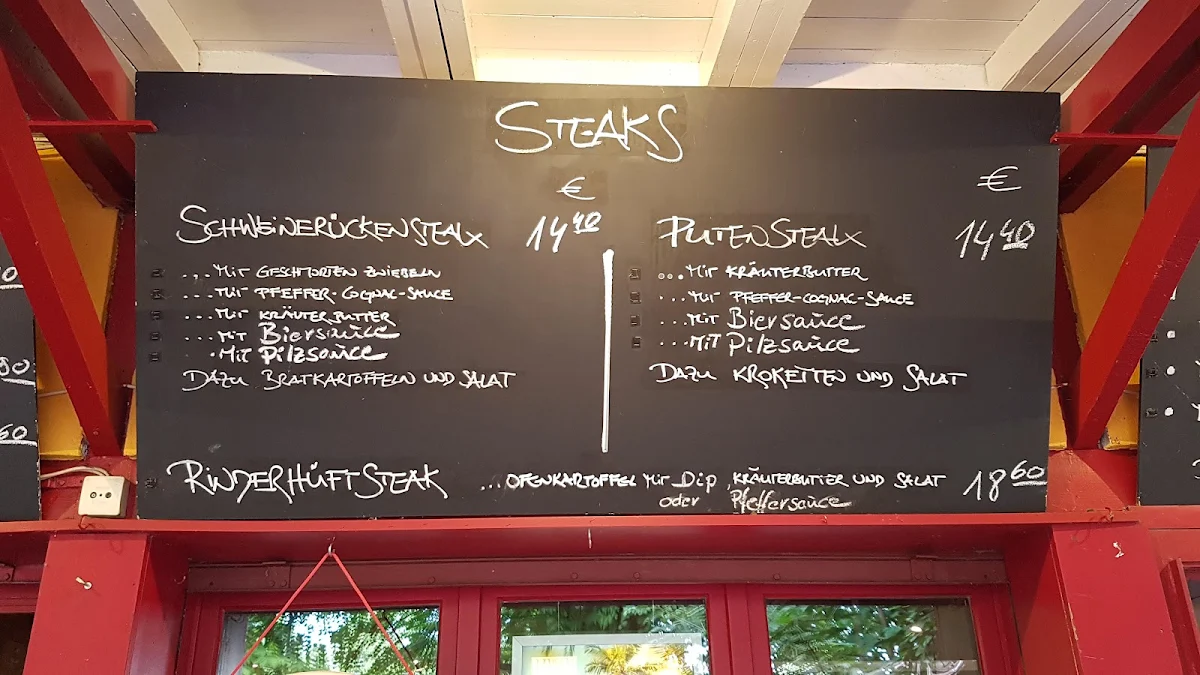 STEAKS
€
€
SCHWEINERÜCKENSTEAK 14 40
... MIT GESCHMORTEN ZWIEBELN
... MIT PFEFFER-COGNAC-SAUCE
... MIT KRÄUTERBUTTER
... MIT Biersauce
... MIT Pilzsauce
DAZU BRATKARTOFFELN UND SALAT
PUTENSTEAK 14 40
... MIT KRÄUTERBUTTER
... MIT PFEFFER-COGNAC-SAUCE
... MIT Biersauce
... MIT Pilzsauce
DAZU KROKETTEN UND SALAT
RINDERHÜFTSTEAK ... OFENKARTOFFEL MIT Dip, KRÄUTERBUTTER UND SALAT 18 60
oder Pfeffersauce
60